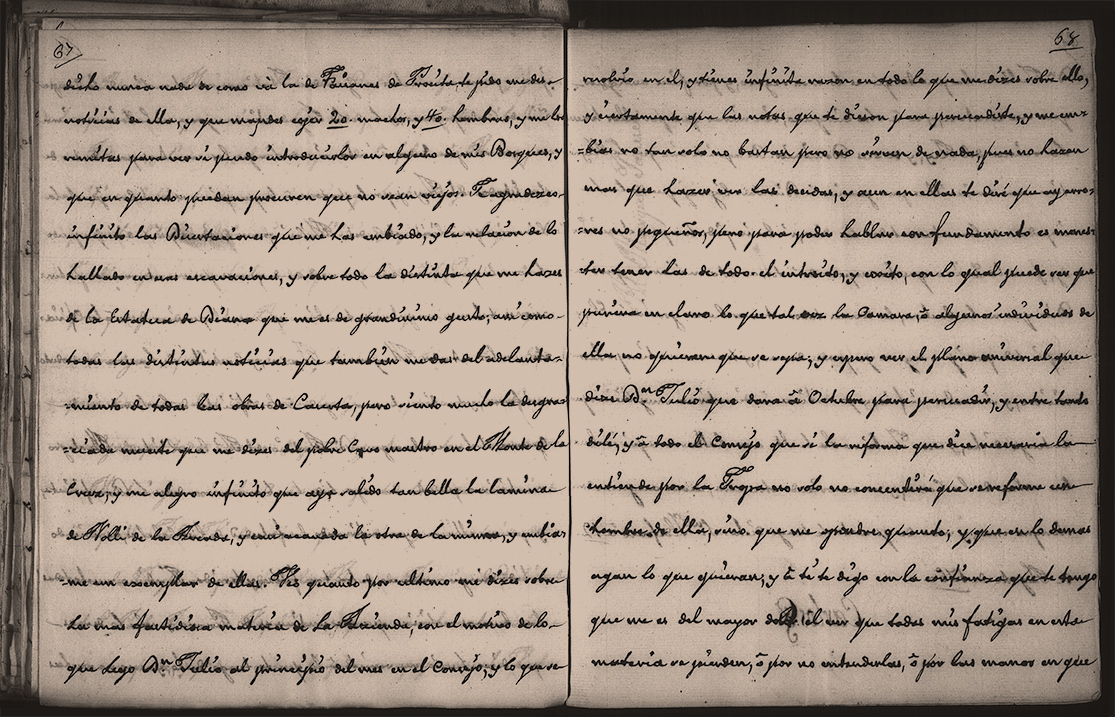 67
dicho nunca nada de como va la de Faisanes de Procita, te pido me des
noticias de ella, y que mandes cojer 20. machos, y 40. hembras, y me los
remitas para ver si puedo introducirlos en alguno de mis Bosques, y
que en quanto puedan procuren que no sean viejos. Te agradezco
infinito las Disertaciones que me has embiado, y la relacion de lo
hallado en esas escavaciones, y sobre todo la distinta que me hazes
de la Estatua de Diana que me es de grandissimo gusto, assi como
todas las distintas noticias que tambien me das del adelanta-
=miento de todas las obras de Caserta, pero siento mucho la desgra-
=ciada muerte que me dizes del pobre Cavo maestro en el Monte de la
Croze, y me alegro infinito que aya salido tan bella la lamina
de Nolli de la , y este acavada la otra de la misma, y embia-
=me un exemplar de ellas. Veo quanto por ultimo me dizes sobre
la mas fastidiosa materia de la Hazienda, con el motivo de lo
que lego Dn. Julio al principio del mes en el Consejo, y lo que se
68
resolvio en el, y tienes infinita razon en todo lo que me dizes sobre ello,
y ciertamente que las notas que te dieron para persuadirte, y me em-
=bias no tan solo no bastan pero no sirven de nada, pues no hazen
mas que hazer ver las deudas, y aun en ellas te diré que ay erro-
=res no pequeños, pero para poder hablar con fundamento es menes-
ter tener las de todo el introito, y exito, con lo qual puede ser que
pusiera en claro lo que tal vez la Camara, ò algunos individuos de
ella no quieran que se sepa; y espero ver el plano universal que
dizes Dn. Julio que dara à Octubre para persuadir, y entre tanto
dile, y à todo el Consejo que si la reforma que dize necesaria la
entiende por la Tropa no solo no consentiré que se reforme un
hombre de ella, sino que me opondre quanto; y que en lo demas
agan lo que quieran; y à ti te digo con la confianza que te tengo
que me es del mayor dolor el ver que todas mis fatigas en esta
materia se pierden, ò por no entenderlas, ò por las manos en que